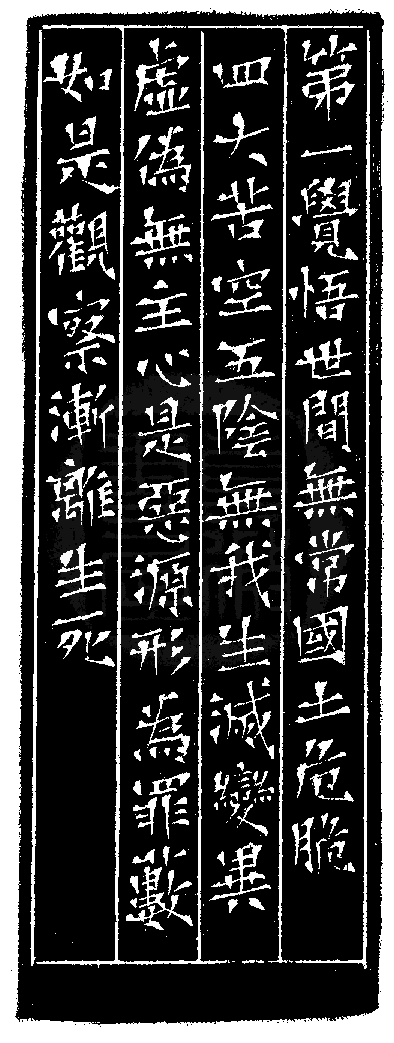 第一覺悟世間無常國土危脆
四大苦空五陰無我生滅變異
虛偽無主心是惡源形為罪藪
如是觀察漸離生死